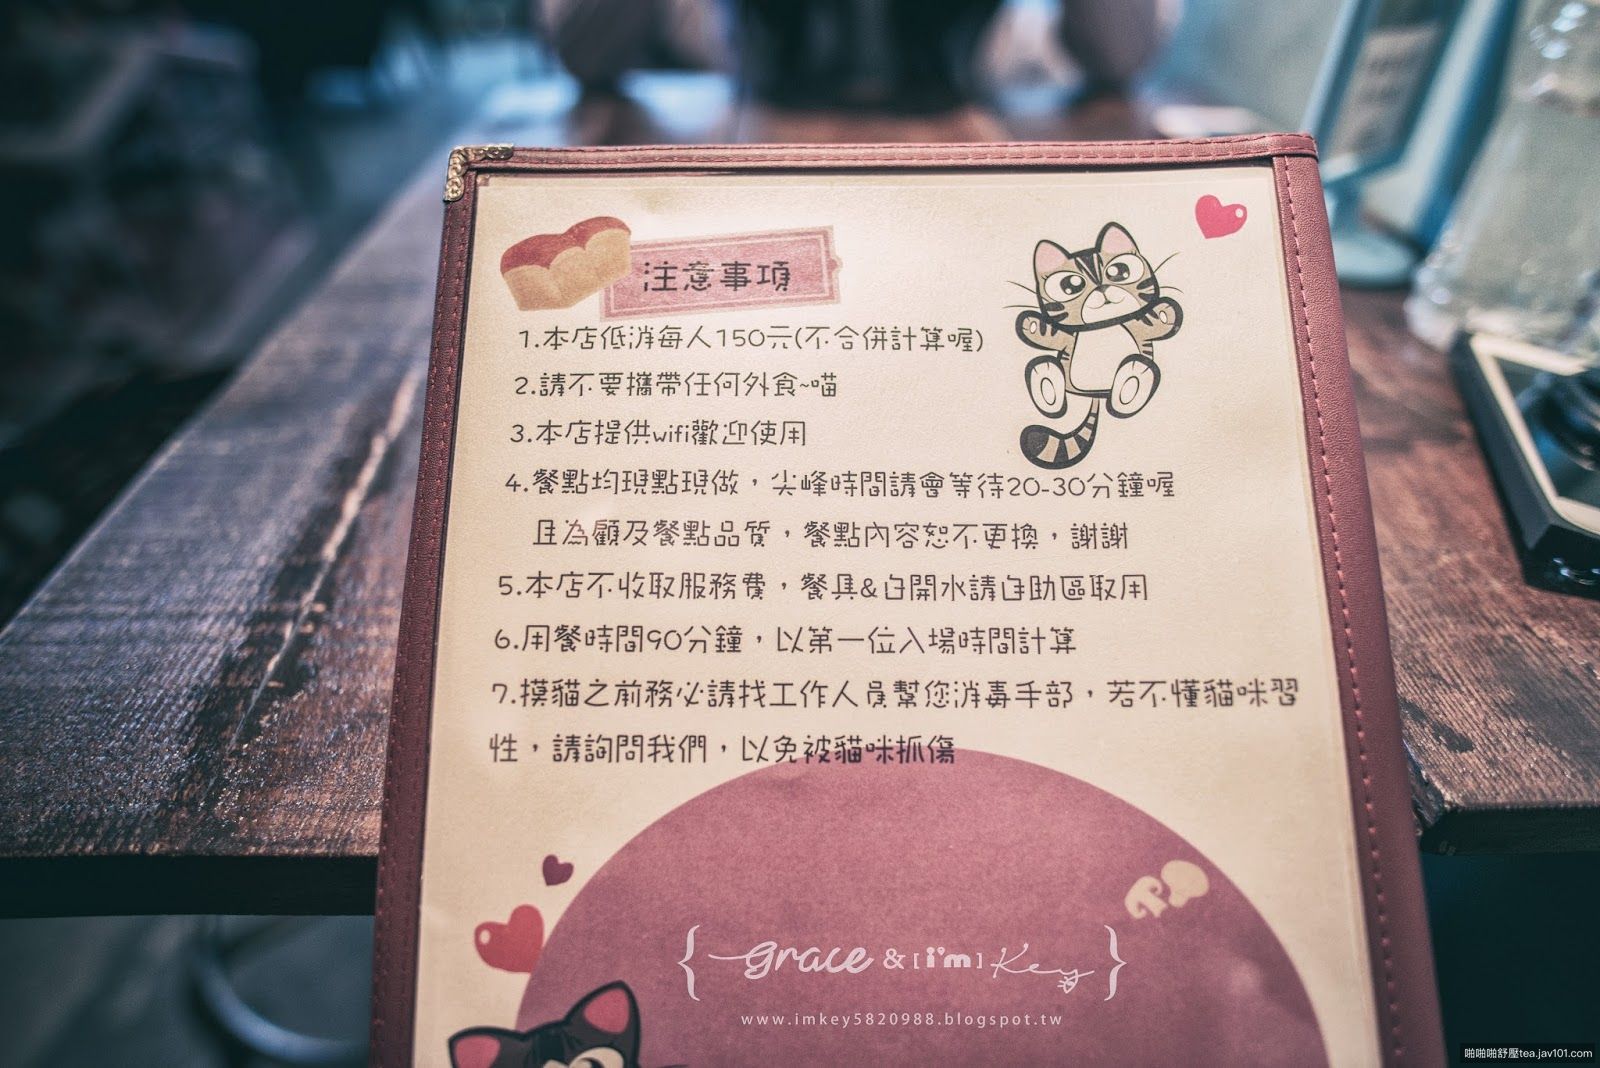 注意事項
1.本店低消每人150元(不合併計算喔)
2.請不要攜帶任何外食~喵
3.本店提供wifi歡迎使用
4.餐點均現點現做，尖峰時間請會等待20-30分鐘喔
且為顧及餐點品質，餐點內容恕不更換，謝謝
5.本店不收取服務費，餐具&白開水請自助區取用
6.用餐時間90分鐘，以第一位入場時間計算
7.摸貓之前務必請找工作人員幫您消毒手部，若不懂貓咪習
性，請詢問我們，以免被貓咪抓傷
{ Grace & [i'm] Key }
www.imkey5820988.blogspot.tw
啪啪啪舒壓tea.jav101.com